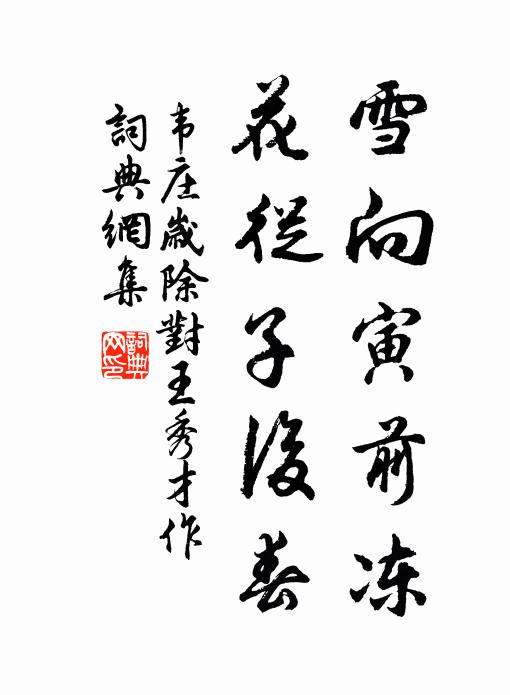 雪向寅前冻
花從子後春
韦庄歲除對王秀才作
詞典網集
詞典
网印